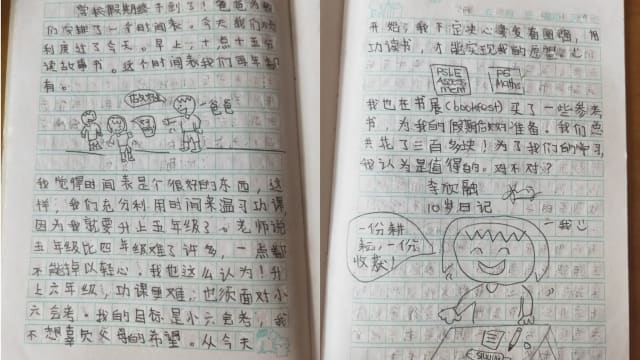 学校假期终于到了！爸爸为我
们安排了一个时间表。今天我们顺
利度过了今天。早上，十点十五分
读故事书。这个时间表我们每年都
有。
爸爸
我觉得时间表是个很好的东西，这
样，我们充分利用时间来温习功课，
因为我就要升上五年级了。老师说
五年级比四年级难了许多，一点都
不能掉以轻心。我也这么认为！升
上六年级，功课更难，也须面对小
六会考。我的目标是小六会考，我
不想辜负父母的希望。从今天
开始，我下定决心要发奋图强，用
功读书，才能实现我的愿望。
PSLE
ASSESS
MENT
P5
Maths
我也在书展(bookfest)买了一些参考
书，为我的假期做好准备。我们总
共花了三百多块！为了我们的学习，
我认为是值得的。对不对？
李欣融
10岁日记
一份耕
耘，一份
收获！
我